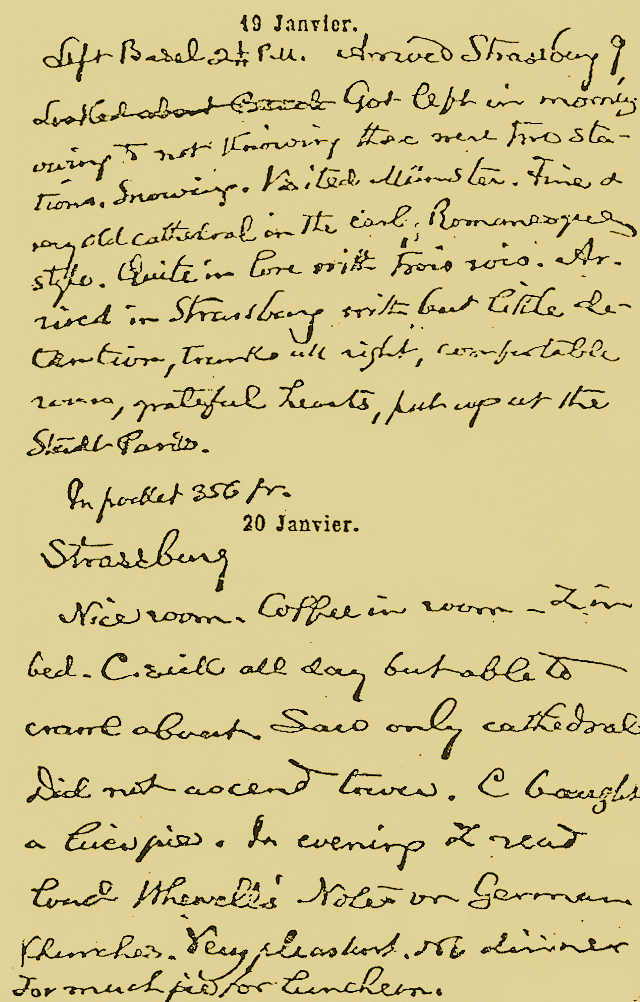 19 Janvier.
Left Basel 2½ P.M. Arrived Strassburg 9
Looked about Got left in morning
owing to not knowing there were two sta-
tions. Snowing. Visited Münster. Fine &
very old cathedral in the earl. Romanesque
style. Quite in love with Trois rois. Ar-
rived in Strassburg with but little de-
tention, trunks all right, comfortable
rooms, grateful hearts, put up at the
Stadt Paris.
In pocket 356 fr.
20 Janvier.
Strassburg
Nice room. Coffee in room - Z in
bed. C. sick all day but able to
crawl about. Saw only cathedral
Did not ascend tower. C bought
a In evening Z read
loud Whewell's Notes on German
Churches. Very pleasant. No dinner
For much pie for luncheon.